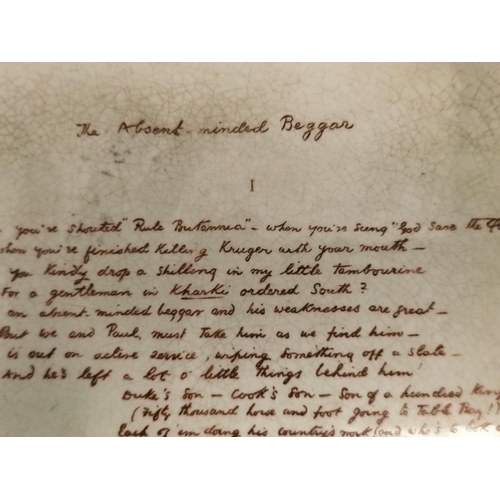 The Absent-minded Beggar
I
you're shouted "Rule Britannia" - when you've sung "God save the
when you're finished killing Kruger with your mouth -
you kindly drop a shilling in my little tambourine
For a gentleman in Kharki ordered South?
an absent-minded beggar and his weaknesses are great -
But we and Paul, must take him as we find him -
is out on active service, wiping something off a slate -
And he's left a lot o' little things behind him!
Duke's Son - Cook's Son - Son of a hundred Kings
(Fifty thousand horse and foot going to Table Bay!)
Each of 'em doing his country's work (and who's to look